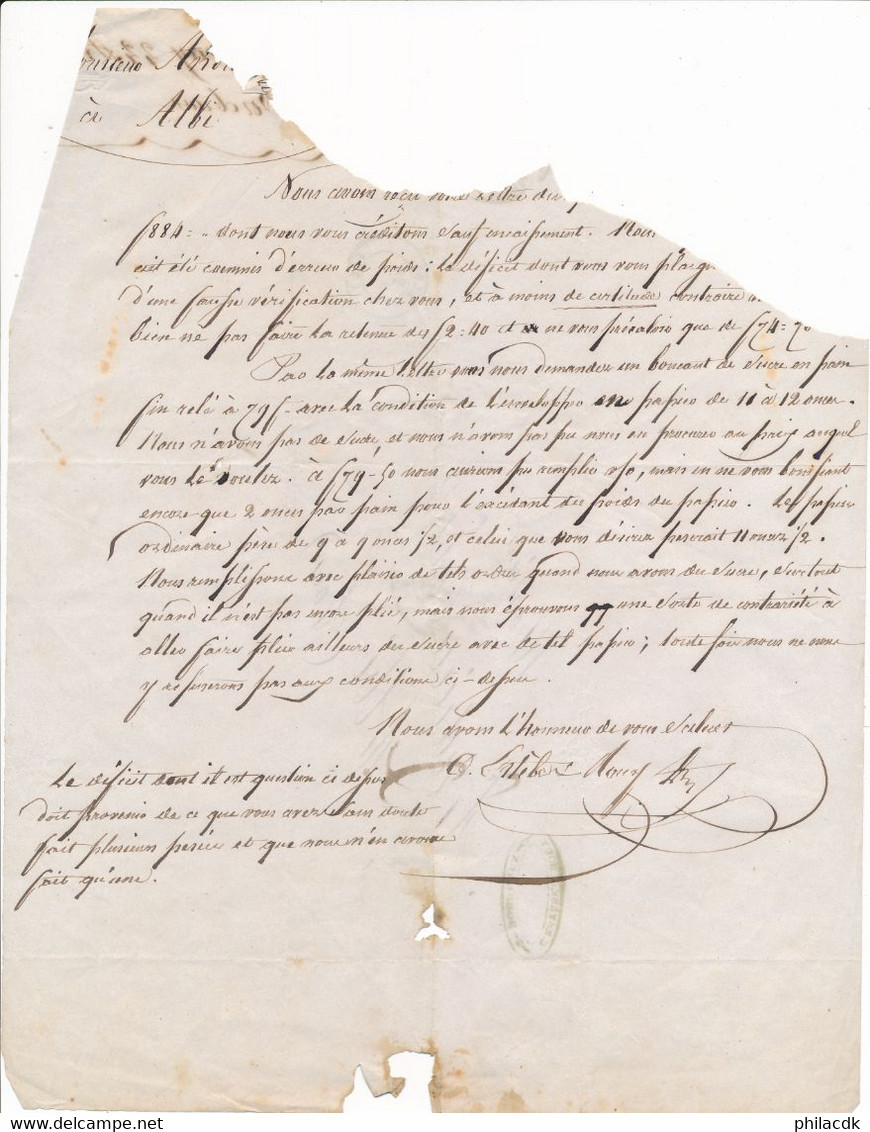 à Albi
Nous avons reçu votre lettre du
f884 = „ dont nous vous créditons sauf encaissement. Nous
ait été commis d'erreur de poids : le déficit dont vous vous plaign
d'une fausse vérification chez vous, et à moins de certitude contraire
bien ne pas faire la retenue des f2=40 et ne vous prévaloir que de f74=70
Par la même lettre vous nous demandez un boucaut de sucre en pain
fin relé à 79f - avec la condition de l'enveloppe en papier de 11 à 12 onces.
Nous n'avons pas de sucre, et nous n'avons pas pu nous en procurer au prix auquel
vous le voulez. à f79-50 nous aurions pu remplir v/o, mais en ne vous bonifiant
encore que 2 onces par pain pour l'excédant du poids du papier. Le papier
ordinaire pèse de 9 à 9 onces 1/2, et celui que vous désirez peserait 11 onces 1/2.
Nous remplissons avec plaisir de tels ordres quand nous avons du sucre, surtout
quand il n'est pas encore plié, mais nous éprouvons une sorte de contrariété à
aller faire plier ailleurs du sucre avec de tel papier ; toute fois nous ne nous
y refuserons pas aux conditions ci-dessus.
Nous avons l'honneur de vous saluer
Le déficit dont il est question ci dessus
doit provenir de ce que vous avez sans doute
fait plusieurs pesées et que nous n'en avons
fait qu'une.
delcampe.net
philacdk